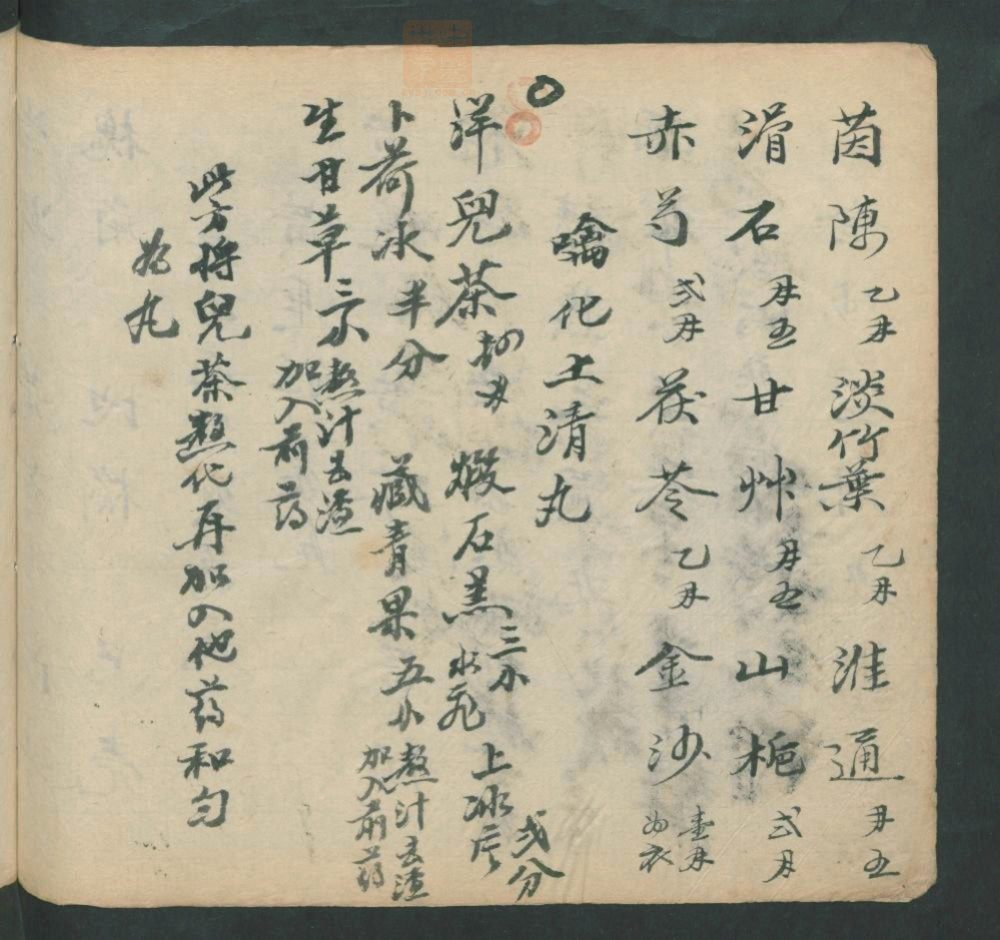 茵陳乙刃淡竹葉乙刃淮通刃五
滑石刃五甘艸刃五山栀弍刃
赤芍弍刃茯苓乙刃金沙壹刃为衣
噙化上清丸
洋兒茶 煅石羔三小水飛 上冰片弍分
卜荷冰半分 藏青果五小熬汁去渣加入前药
生甘草三小熬汁去渣加入前药
此方将兒茶熬化再加入他药和匀
为丸